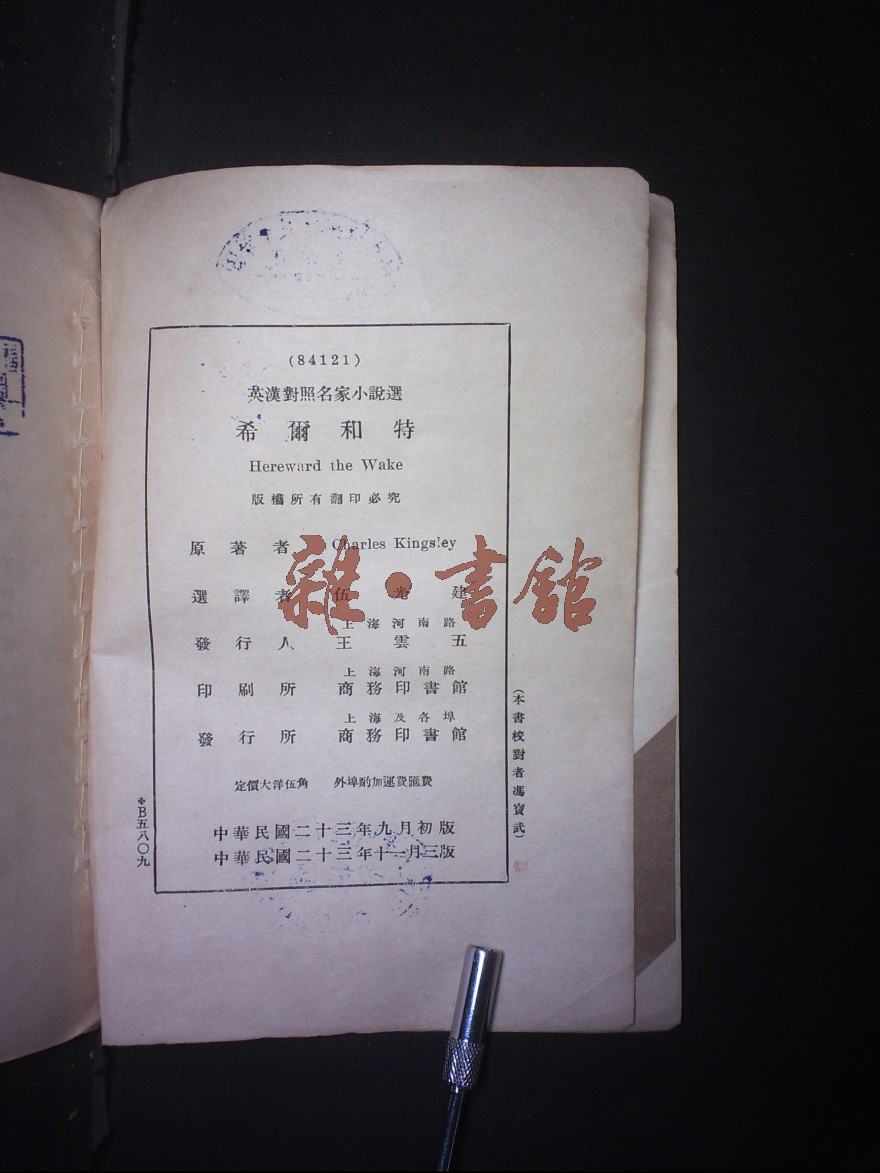 (84121)
英漢對照名家小說選
希爾和特
Hereward the Wake
版權所有翻印必究
原著者 Charles Kingsley
選譯者 伍光建
上海河南路
發行人 王雲五
上海河南路
印刷所 商務印書館
上海及各埠
發行所 商務印書館
定價大洋伍角 外埠酌加運費匯費
中華民國二十三年九月初版
中華民國二十三年十一月三版
(本書校對者馮寶武)
*B五八〇九
雜·書館